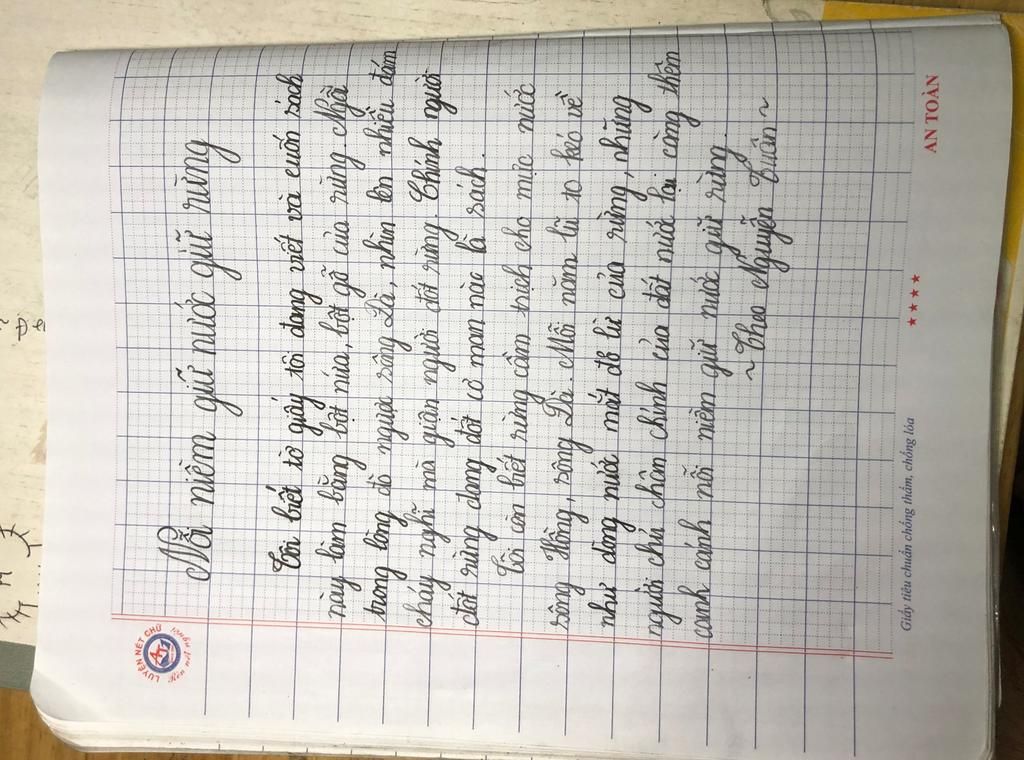 LUYỆN NÉT CHỮ
Rèn nết người
Nỗi niềm giữ nước giữ rừng
Tôi biết tờ giấy tôi đang viết và cuốn sách
này làm bằng bột nứa, bột gỗ của rừng. Ngồi
trong lòng đò ngược sông Đà, nhìn lên nhiều đám
cháy nghĩ mà giận người đốt rừng. Chính người
đốt rừng đang đốt cơ man nào là sách.
Tôi còn biết rừng cầm trịch cho mực nước
sông Hồng, sông Đà. Mỗi năm lũ to kéo về
như dòng nước mắt đỏ lừ của rừng, những
người chủ chân chính của đất nước lại càng thêm
canh cánh nỗi niềm giữ nước giữ rừng.
~ Theo Nguyễn Tuân ~
Giấy tiêu chuẩn chống thấm, chống lóa
★★★★
AN TOÀN